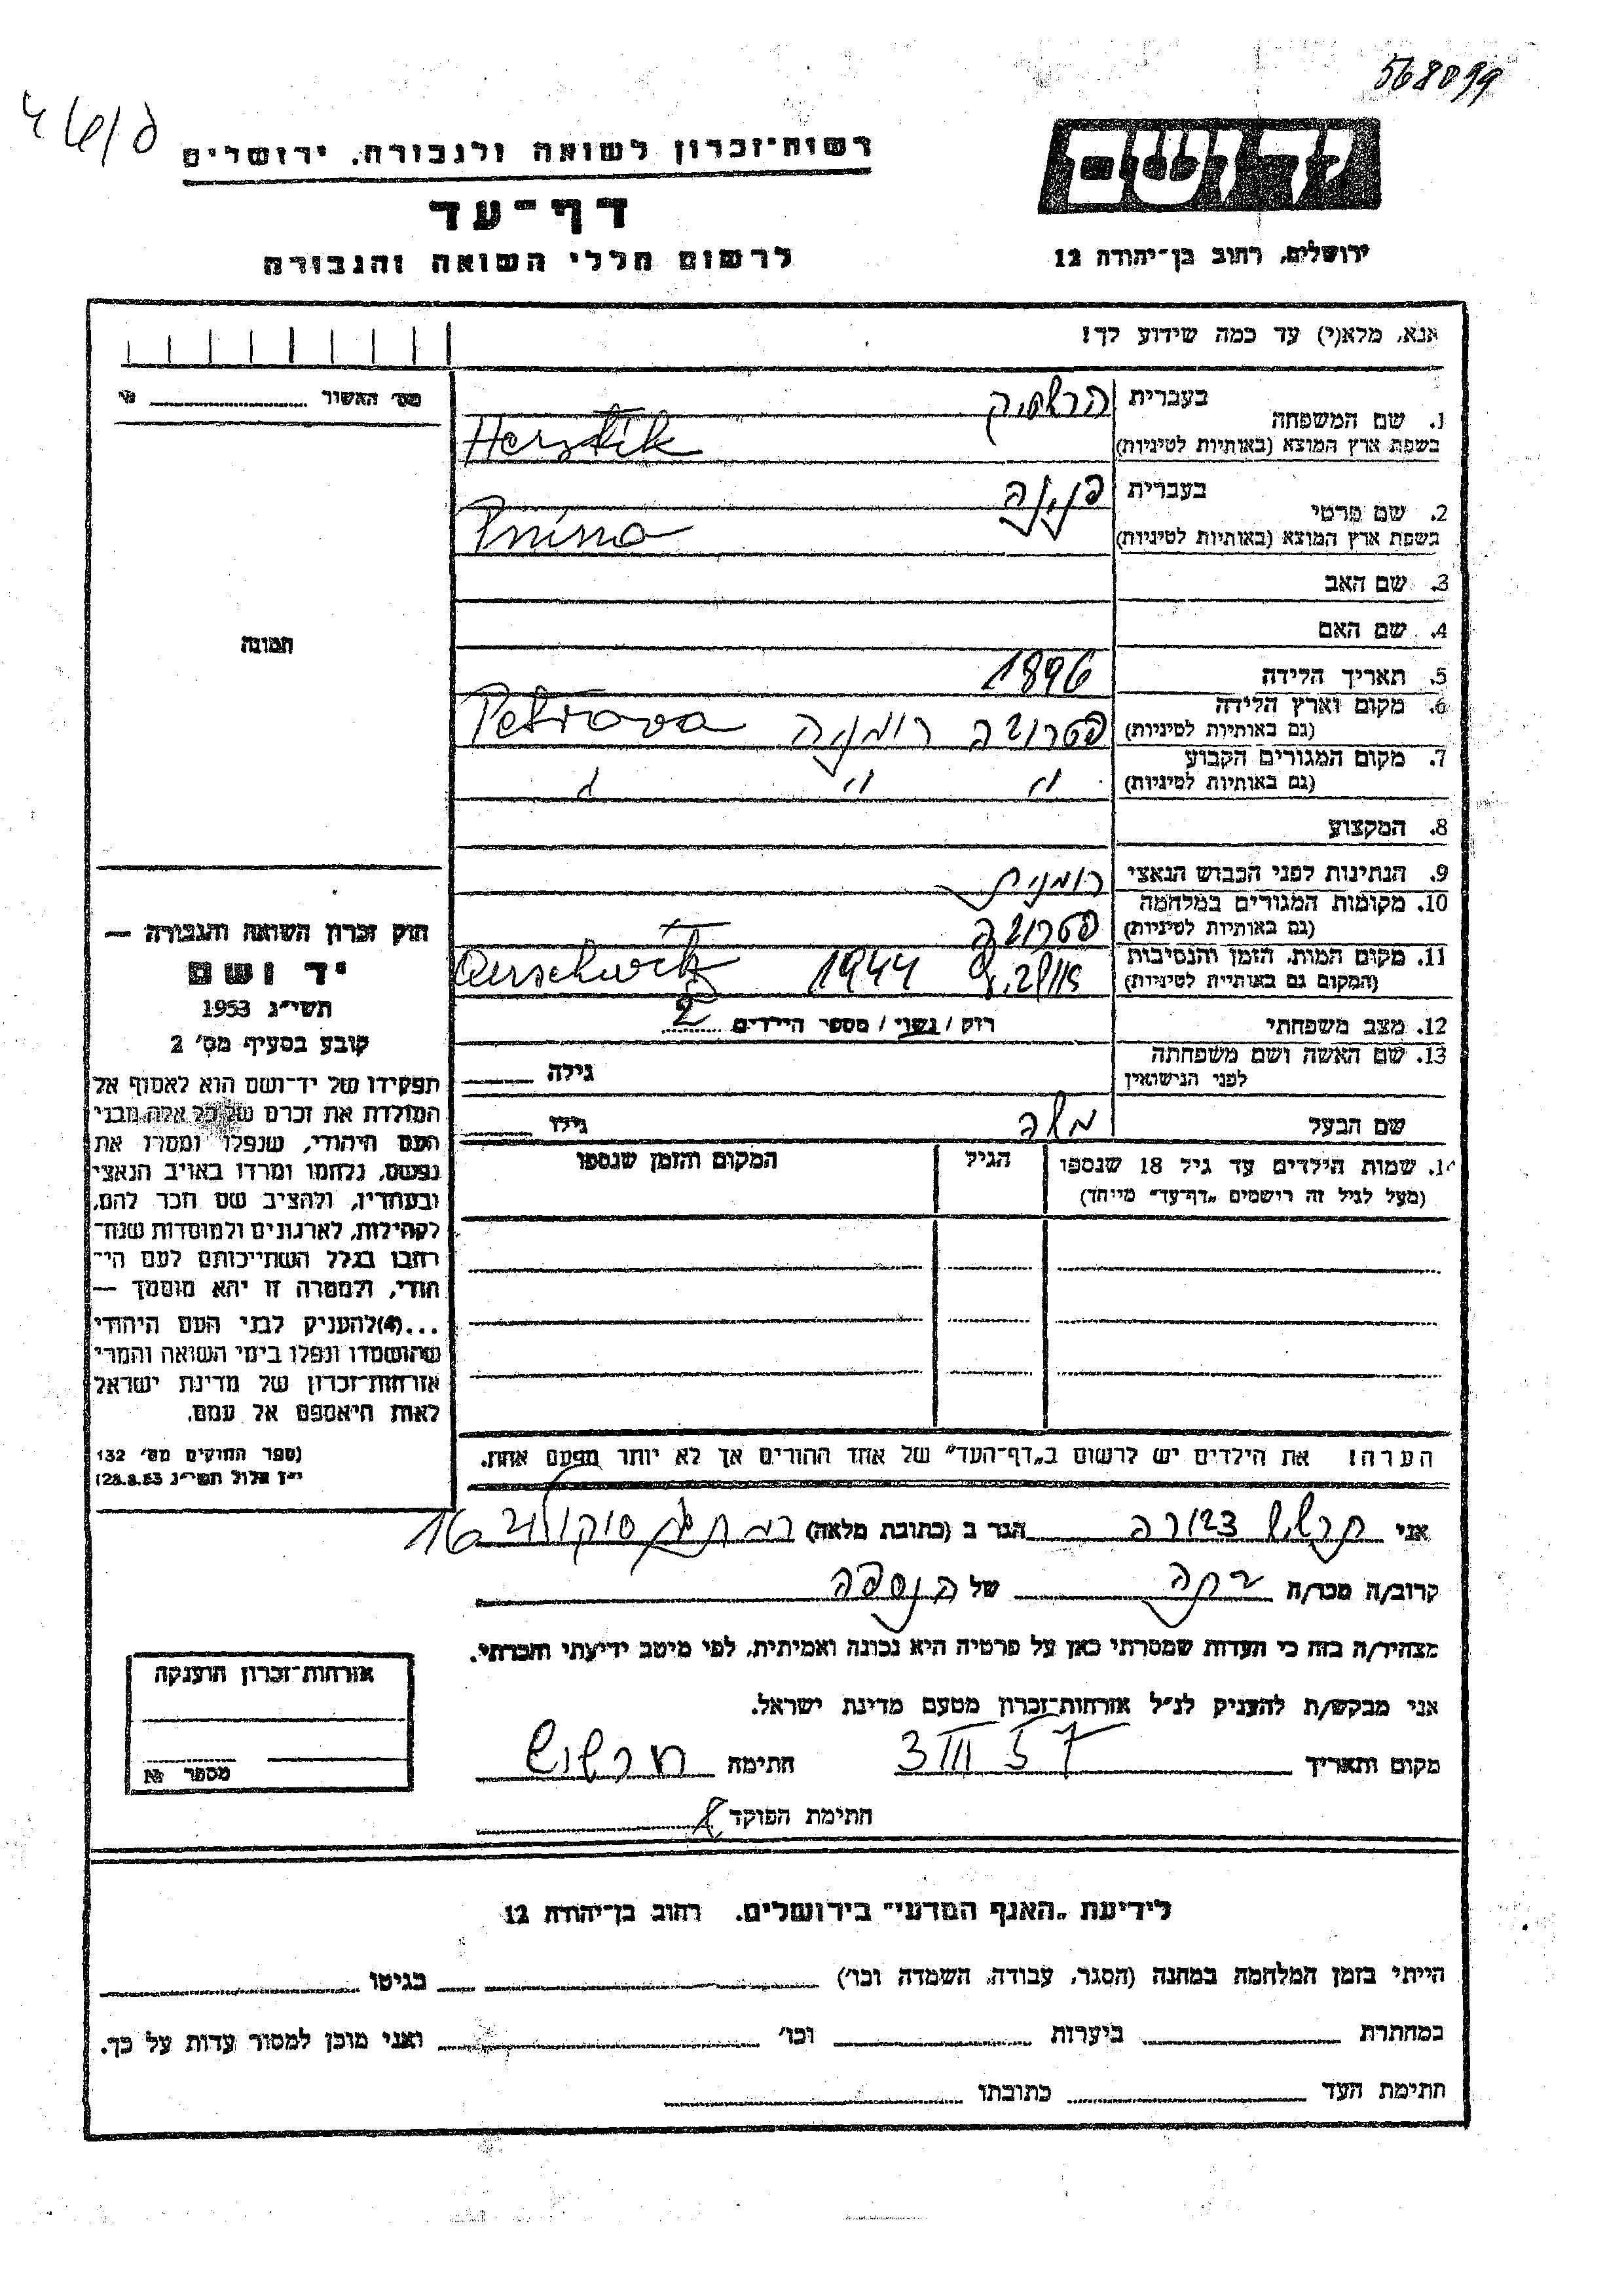 568099
רשות־זכרון לשואה ולגבורה, ירושלים
דף־עד
לרשום חללי השואה והגבורה
יד ושם
ירושלים, רחוב בן־יהודה 12
אנא, מלא(י) עד כמה שידוע לך!
מס׳ האשור
תמונה
1. שם המשפחה בעברית
בשפת ארץ המוצא (באותיות לטיניות)
Hersztik
2. שם פרטי בעברית פנינה
בשפת ארץ המוצא (באותיות לטיניות)
Pnina
3. שם האב
4. שם האם
5. תאריך הלידה 1896
6. מקום וארץ הלידה
(גם באותיות לטיניות) פטרובה רומניה Petrova
7. מקום המגורים הקבוע
(גם באותיות לטיניות) " "
8. המקצוע
9. הנתינות לפני הכבוש הנאצי רומנית
10. מקומות המגורים במלחמה
(גם באותיות לטיניות) פטרובה
11. מקום המות, הזמן והנסיבות
(המקום גם באותיות לטיניות) 1944
12. מצב משפחתי רוק / נשוי / מספר הילדים 2
13. שם האשה ושם משפחתה
לפני הנישואין גילה
שם הבעל משה גילו
14. שמות הילדים עד גיל 18 שנספו הגיל המקום והזמן שנספו
(מעל לגיל זה רושמים „דף־עד״ מיוחד)
הערה! את הילדים יש לרשום ב„דף־העד״ של אחד ההורים אך לא יותר מפעם אחת.
חוק זכרון השואה והגבורה —
יד ושם
תשי״ג 1953
קובע בסעיף מס׳ 2
תפקידו של יד־ושם הוא לאסוף אל
המולדת את זכרם של כל אלה מבני
העם היהודי, שנפלו ומסרו את
נפשם, נלחמו ומרדו באויב הנאצי
ובעוזריו, ולהציב שם וזכר להם,
לקהילות, לארגונים ולמוסדות שנח־
רבו בגלל השתייכותם לעם הי־
הודי, ולמטרה זו יהא מוסמך —
...(4) להעניק לבני העם היהודי
שהושמדו ונפלו בימי השואה והמרי
אזרחות־זכרון של מדינת ישראל
לאות היאספם אל עמם.
(ספר החוקים מס׳ 132
י״ז אלול תשי״ג 28.8.53)
אני דבורה הגר ב (כתובת מלאה) סוקולוב 16
קרוב/ה מכר/ה של הנספה
מצהיר/ה בזה כי העדות שמסרתי כאן על פרטיה היא נכונה ואמיתית, לפי מיטב ידיעתי והכרתי.
אני מבקש/ת להעניק לנ״ל אזרחות־זכרון מטעם מדינת ישראל.
מקום ותאריך 3 III 57 חתימה
חתימת הפוקד
אזרחות־זכרון הוענקה
מספר №
לידיעת „האגף המדעי״ בירושלים, רחוב בן־יהודה 12
הייתי בזמן המלחמה במחנה (הסגר, עבודה, השמדה וכו׳) בגיטו
במחתרת ביערות וכו׳ ואני מוכן למסור עדות על כך.
חתימת העד כתובתו